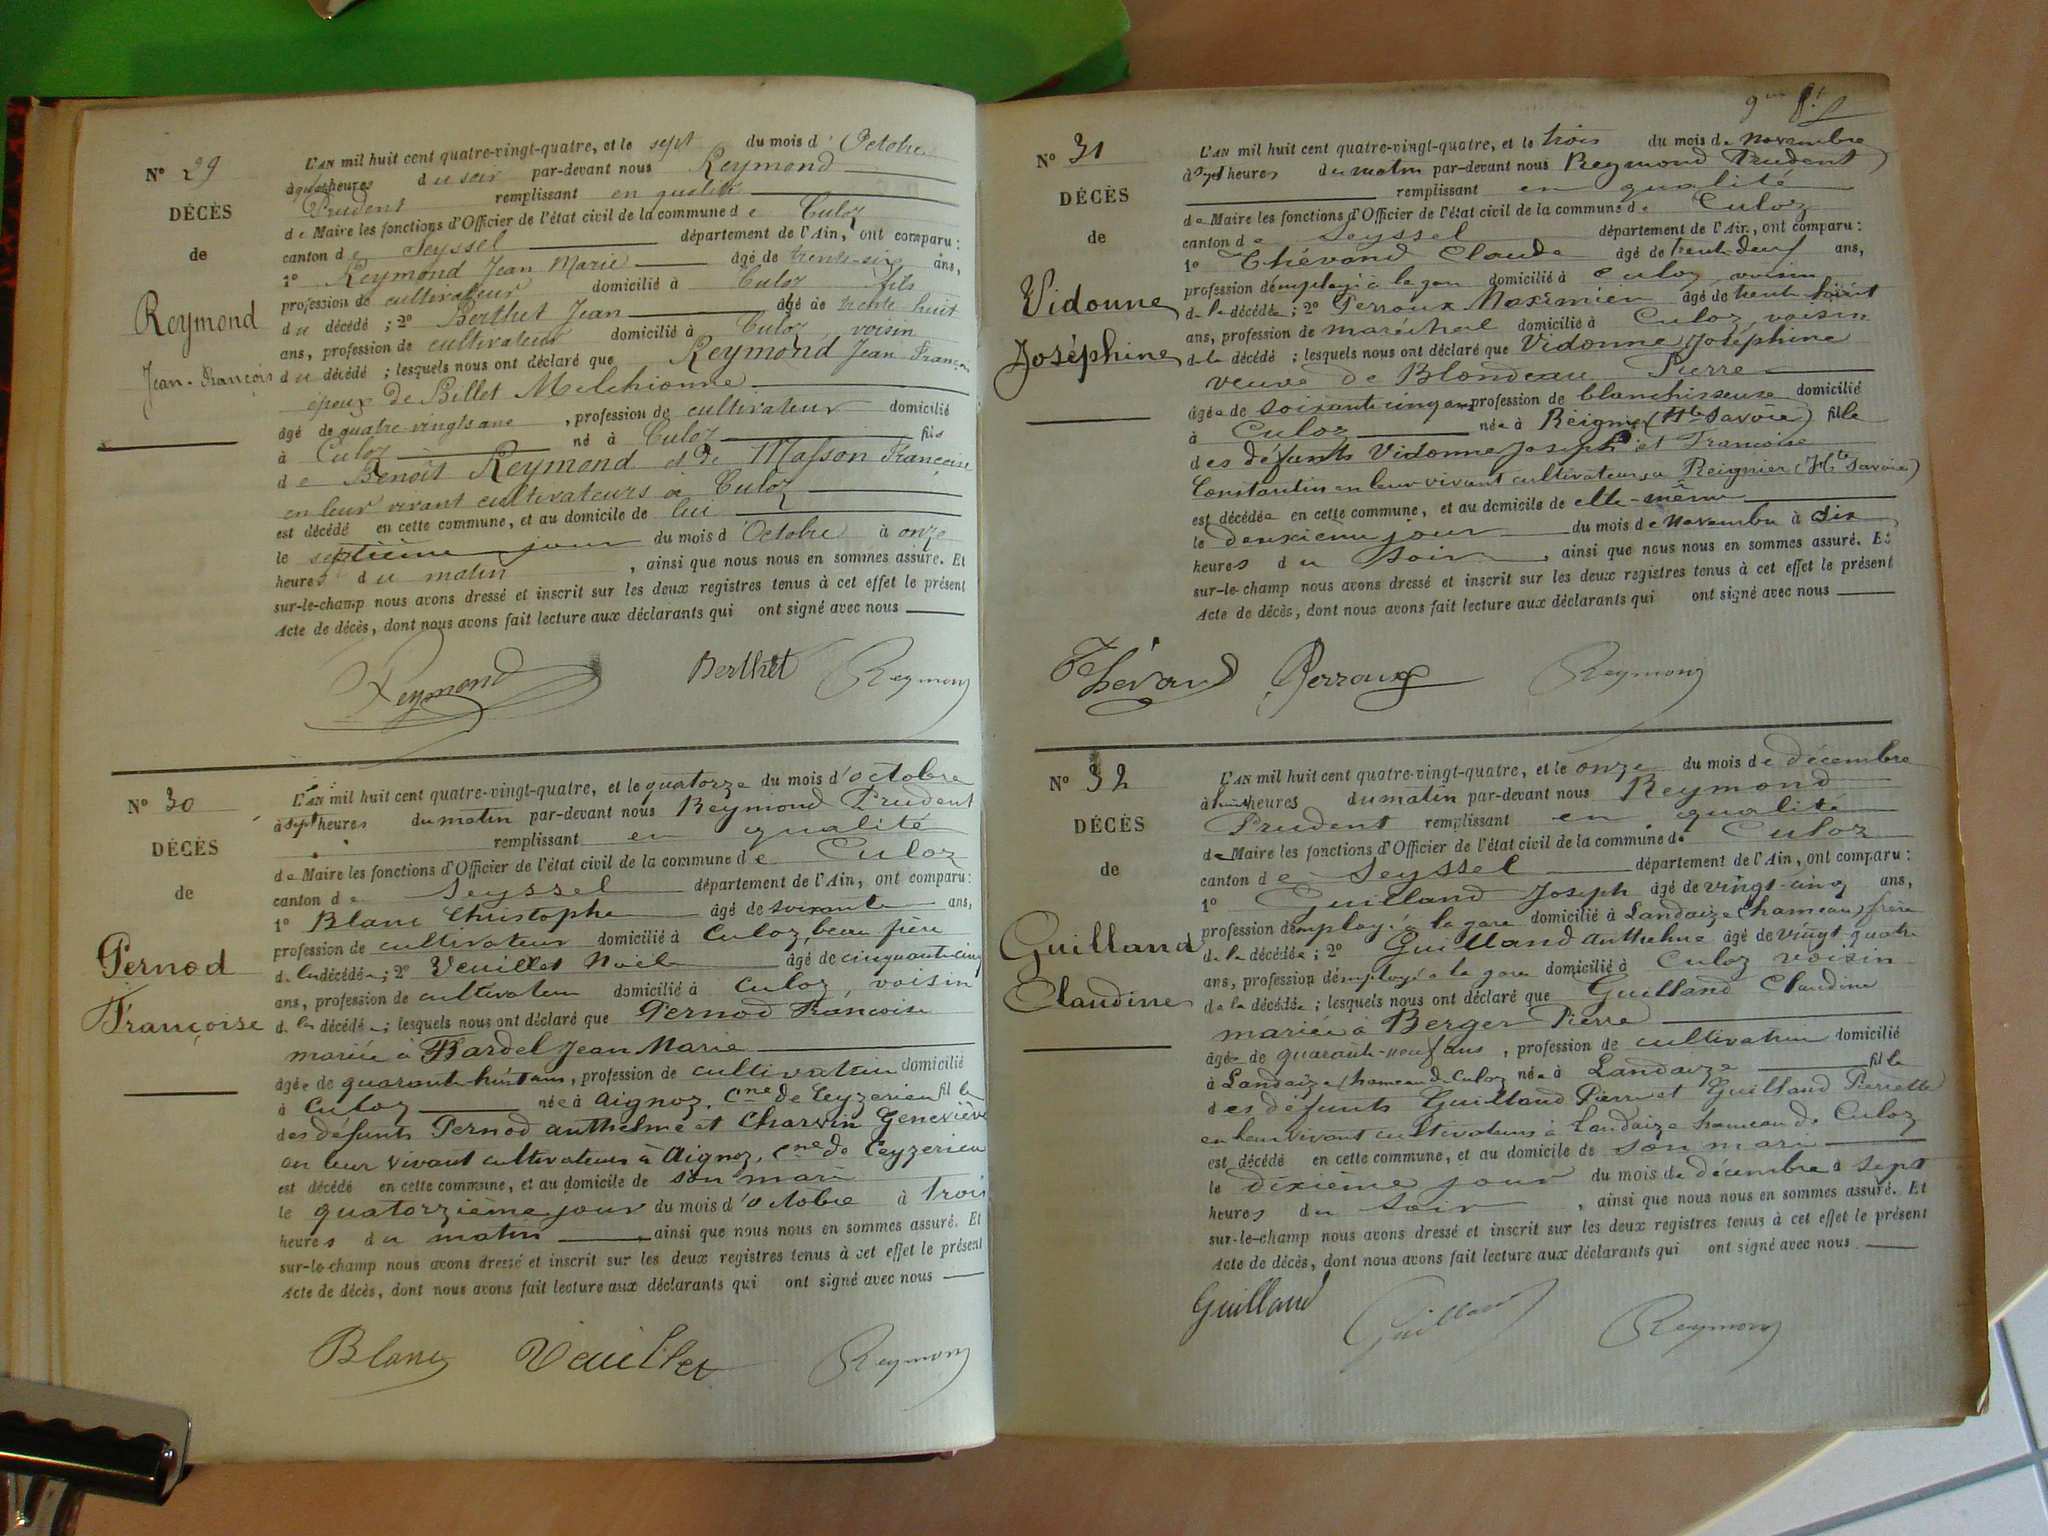 N° 29
DÉCÈS
de
Reymond
Jean-François
L'AN mil huit cent quatre-vingt-quatre, et le sept du mois d'Octobre
à quatre heures du soir par-devant nous Reymond
Prudent remplissant en qualité
de Maire les fonctions d'Officier de l'état civil de la commune de Culoz
canton de Seyssel département de l'Ain, ont comparu :
1° Reymond Jean Marie âgé de trente-six ans,
profession de cultivateur domicilié à Culoz fils
du décédé ; 2° Berthet Jean âgé de trente huit
ans, profession de cultivateur domicilié à Culoz, voisin
du décédé ; lesquels nous ont déclaré que Reymond Jean François
époux de Billet Melchionne
âgé de quatre-vingts ans, profession de cultivateur domicilié
à Culoz né à Culoz fils
de Benoit Reymond et de Masson Françoise
en leur vivant cultivateurs à Culoz
est décédé en cette commune, et au domicile de lui
le septième jour du mois d'Octobre à onze
heures du matin, ainsi que nous nous en sommes assuré. Et
sur-le-champ nous avons dressé et inscrit sur les deux registres tenus à cet effet le présent
Acte de décès, dont nous avons fait lecture aux déclarants qui ont signé avec nous
Reymond Berthet Reymond
N° 30
DÉCÈS
de
Pernod
Françoise
L'AN mil huit cent quatre-vingt-quatre, et le quatorze du mois d'octobre
à sept heures du matin par-devant nous Reymond Prudent
remplissant en qualité
de Maire les fonctions d'Officier de l'état civil de la commune de Culoz
canton de Seyssel département de l'Ain, ont comparu :
1° Blanc Christophe âgé de soixante ans,
profession de cultivateur domicilié à Culoz, beau frère
de la décédée ; 2° Veuillet Noël âgé de cinquante-cinq
ans, profession de cultivateur domicilié à Culoz, voisin
de la décédée ; lesquels nous ont déclaré que Pernod Françoise
mariée à Hardel Jean Marie
âgée de quarante-huit ans, profession de cultivatrice domicilié
à Culoz née à Aignoz, Cne de Ceyzerieu fille
des défunts Pernod Anthelme et Charvin Geneviève
en leur vivant cultivateurs à Aignoz, Cne de Ceyzerieu
est décédé en cette commune, et au domicile de son mari
le quatorzième jour du mois d'octobre à trois
heures du matin, ainsi que nous nous en sommes assuré. Et
sur-le-champ nous avons dressé et inscrit sur les deux registres tenus à cet effet le présent
Acte de décès, dont nous avons fait lecture aux déclarants qui ont signé avec nous
Blanc Veuillet Reymond
N° 31
DÉCÈS
de
Vidonne
Joséphine
L'AN mil huit cent quatre-vingt-quatre, et le trois du mois de Novembre
à sept heures du matin par-devant nous Reymond Prudent
remplissant en qualité
de Maire les fonctions d'Officier de l'état civil de la commune de Culoz
canton de Seyssel département de l'Ain, ont comparu :
1° Thévand Claude âgé de trente-deux ans,
profession d'employé à la gare domicilié à Culoz, voisin
de la décédée ; 2° Perroux Maximien âgé de trente huit
ans, profession de maréchal domicilié à Culoz, voisin
de la décédé ; lesquels nous ont déclaré que Vidonne Joséphine
veuve de Blondeau Pierre
âgée de soixante cinq ans, profession de blanchisseuse domicilié
à Culoz née à Reignier (Hte Savoie) fille
des défunts Vidonne Joseph et Françoise
Constantin en leur vivant cultivateurs à Reignier (Hte Savoie)
est décédée en cette commune, et au domicile de elle-même
le deuxième jour du mois de Novembre à dix
heures du soir, ainsi que nous nous en sommes assuré. Et
sur-le-champ nous avons dressé et inscrit sur les deux registres tenus à cet effet le présent
Acte de décès, dont nous avons fait lecture aux déclarants qui ont signé avec nous
Thévand Perroux Reymond
N° 32
DÉCÈS
de
Guilland
Claudine
L'AN mil huit cent quatre-vingt-quatre, et le onze du mois de décembre
à huit heures du matin par-devant nous Reymond
Prudent remplissant en qualité
de Maire les fonctions d'Officier de l'état civil de la commune de Culoz
canton de Seyssel département de l'Ain, ont comparu :
1° Guilland Joseph âgé de vingt-cinq ans,
profession d'employé à la gare domicilié à Landaize (hameau) frère
de la décédée ; 2° Guilland Anthelme âgé de vingt quatre
ans, profession d'employé à la gare domicilié à Culoz voisin
de la décédée ; lesquels nous ont déclaré que Guilland Claudine
mariée à Berger Pierre
âgée de quarante-neuf ans, profession de cultivatrice domicilié
à Landaize (hameau de Culoz née à Landaize fille
des défunts Guilland Pierre et Guilland Pierrette
en leur vivant cultivateurs à Landaize hameau de Culoz
est décédé en cette commune, et au domicile de son mari
le dixième jour du mois de décembre à sept
heures du soir, ainsi que nous nous en sommes assuré. Et
sur-le-champ nous avons dressé et inscrit sur les deux registres tenus à cet effet le présent
Acte de décès, dont nous avons fait lecture aux déclarants qui ont signé avec nous
Guilland Guilland Reymond